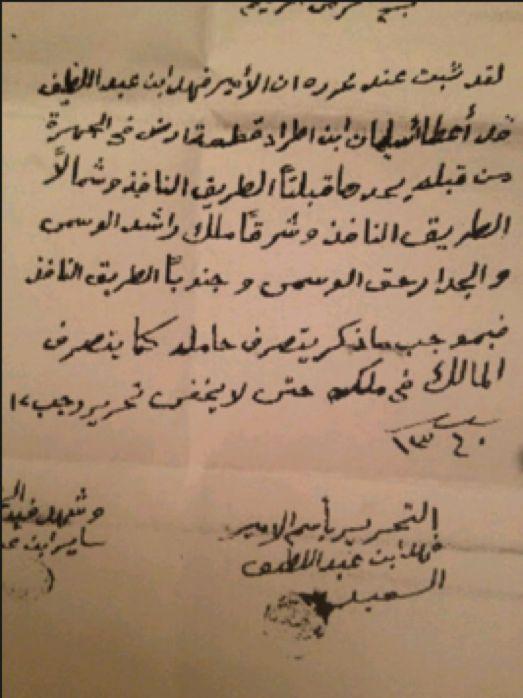 لقد ثبت عند محرره ان الأمير فهد ابن عبد اللطيف
قد أعطا سليمان ابن اطراد قطعة ارض في الجهرة
من قبله يحدها قبلتاً الطريق النافذ وشمالاً
الطريق النافذ وشرقاً ملك راشد الوسمي
والجدار عق الوسمي وجنوباً الطريق النافذ
فبموجب ما ذكر يتصرف حامله كما يتصرف
المالك في ملكه حتى لا يخفى تحرير رجب ١٢
١٣٦٠
التحرير بأسم الامير
فهد ابن عبد اللطيف
وشهد
ساير ابن